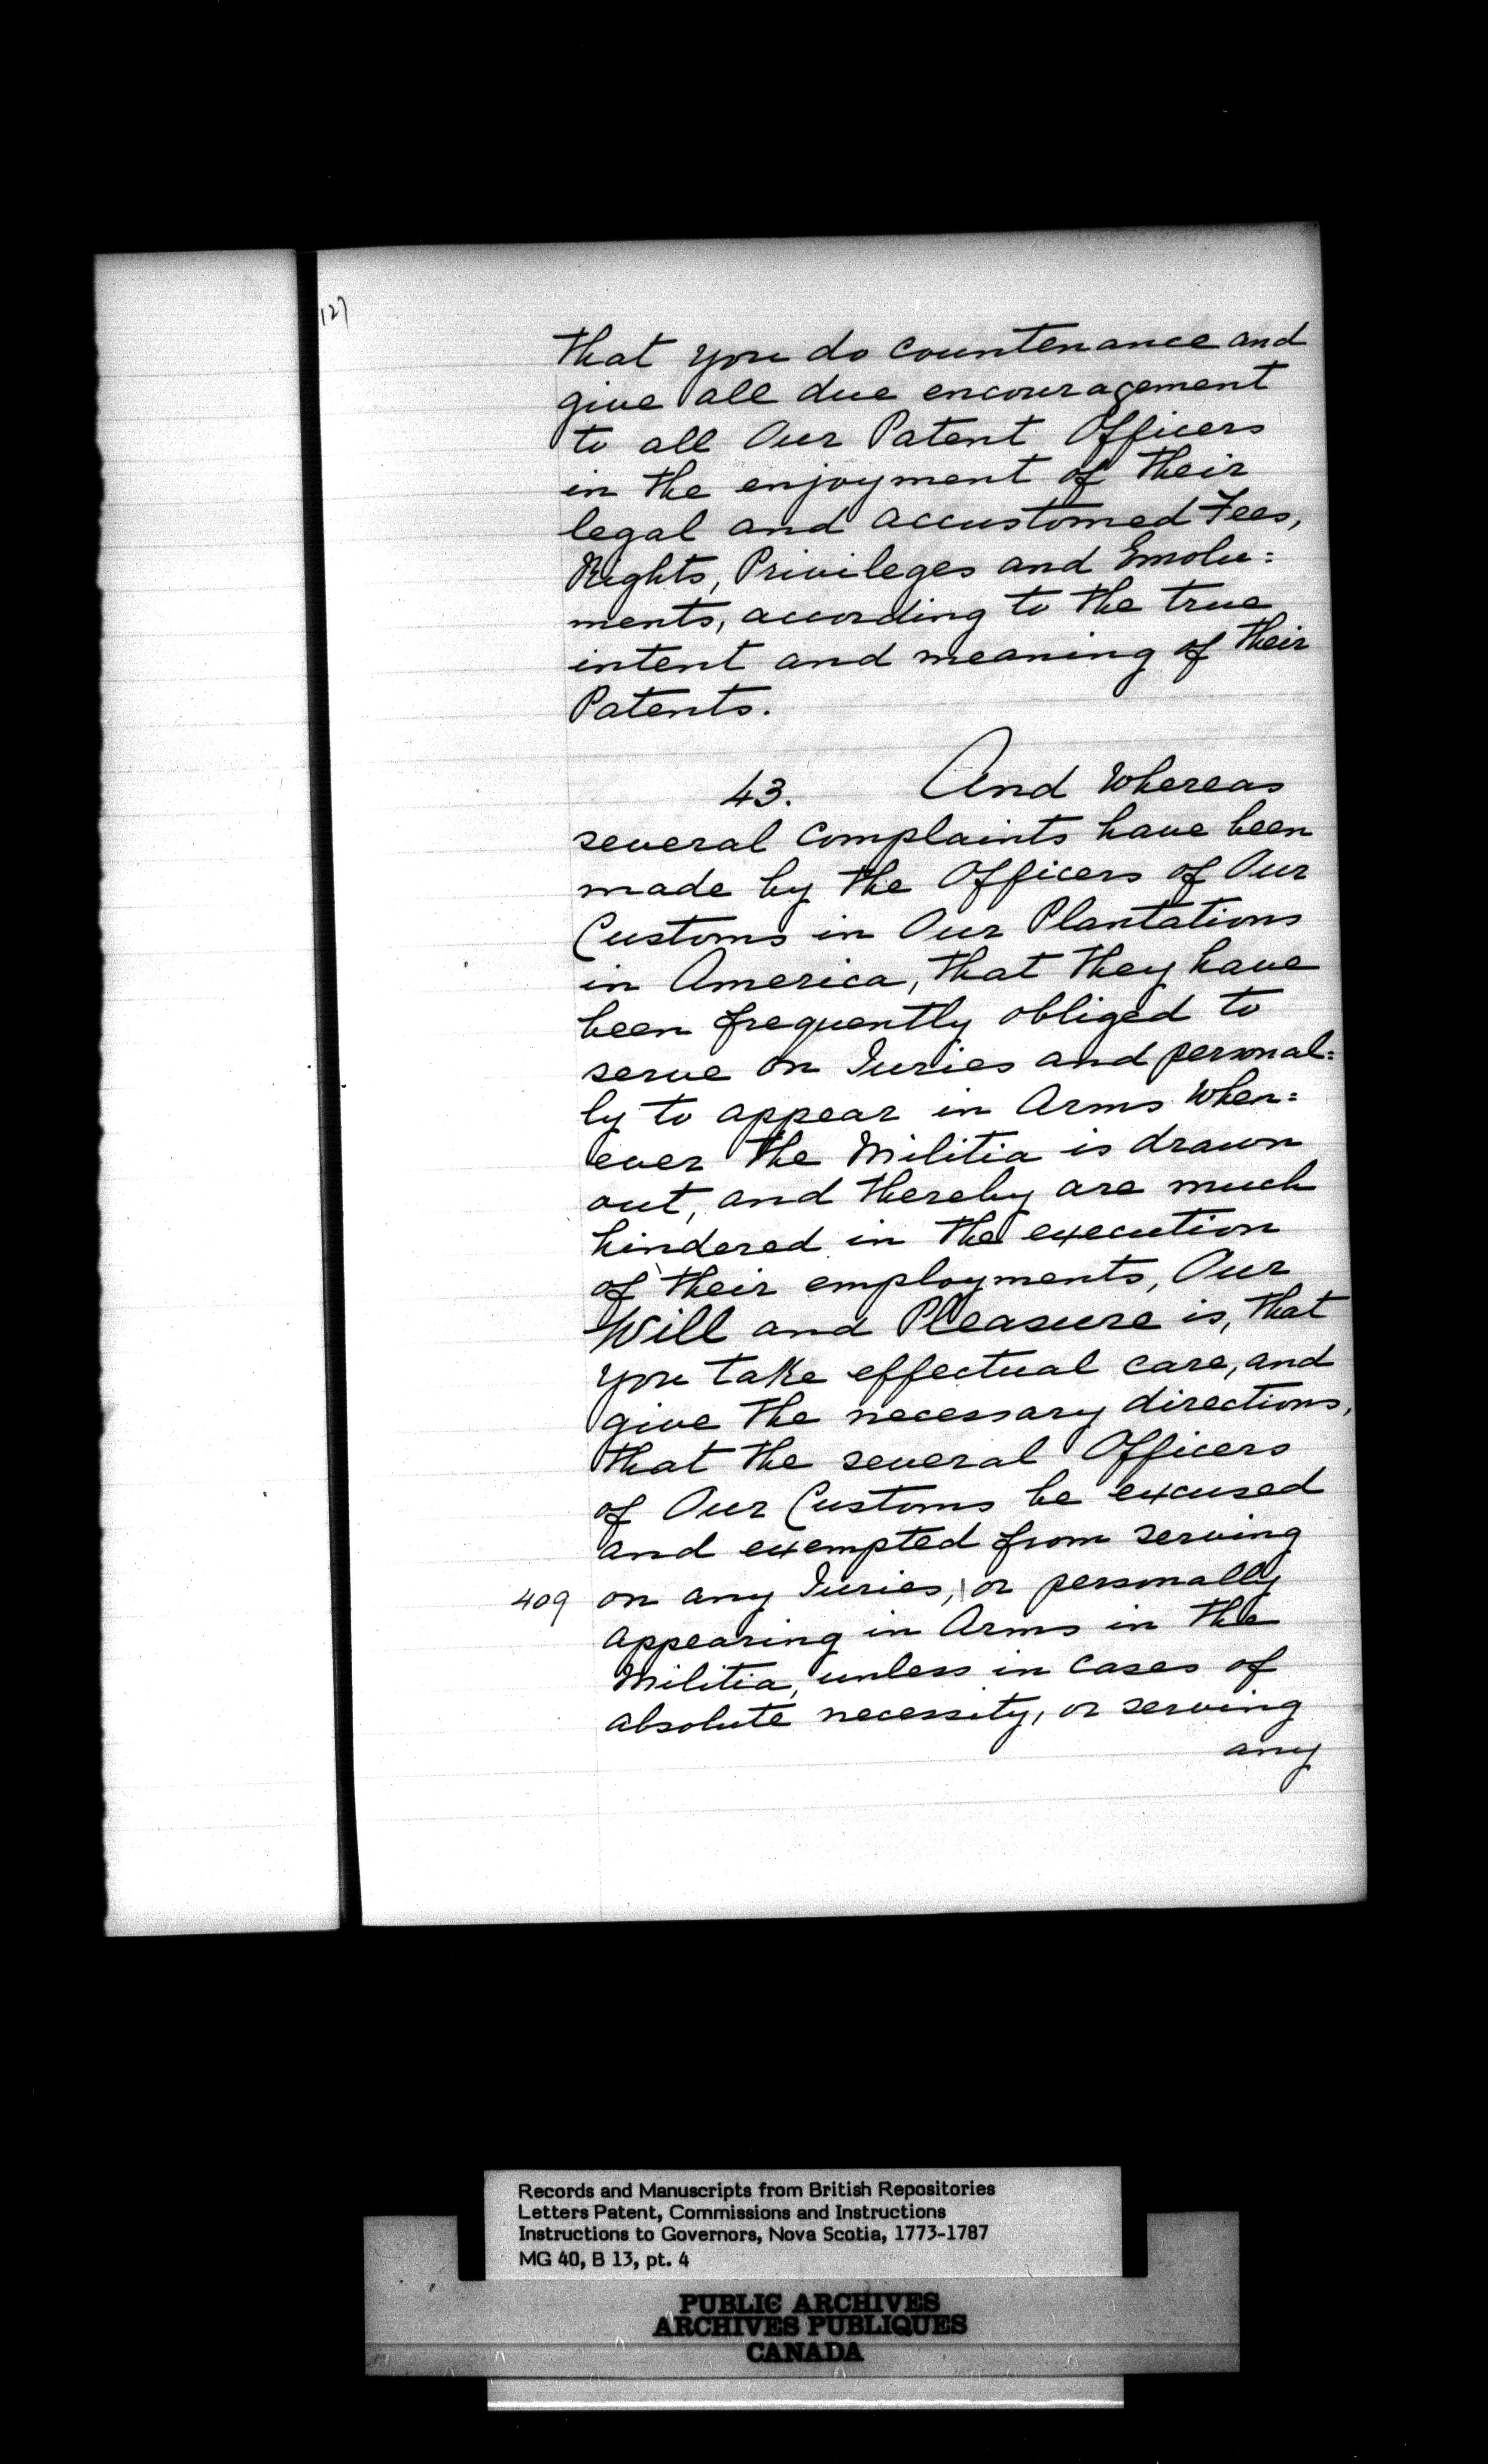 127
that you do countenance and
give all due encouragement
to all Our Patent Officers
in the enjoyment of their
legal and accustomed Fees,
Rights, Privileges and Emolu=
ments, according to the true
intent and meaning of their
Patents.
43. And Whereas
several complaints have been
made by the Officers of Our
Customs in Our Plantations
in America, that they have
been frequently obliged to
serve on Juries and personal=
ly to appear in Arms when=
ever the Militia is drawn
out, and thereby are much
hindered in the execution
of their employments, Our
Will and Pleasure is, that
you take effectual care, and
give the necessary directions,
that the several Officers
of Our Customs be excused
and exempted from serving
409 on any Juries, | or personally
appearing in Arms in the
Militia, unless in cases of
absolute necessity, or serving
any
Records and Manuscripts from British Repositories
Letters Patent, Commissions and Instructions
Instructions to Governors, Nova Scotia, 1773-1787
MG 40, B 13, pt. 4
PUBLIC ARCHIVES
ARCHIVES PUBLIQUES
CANADA